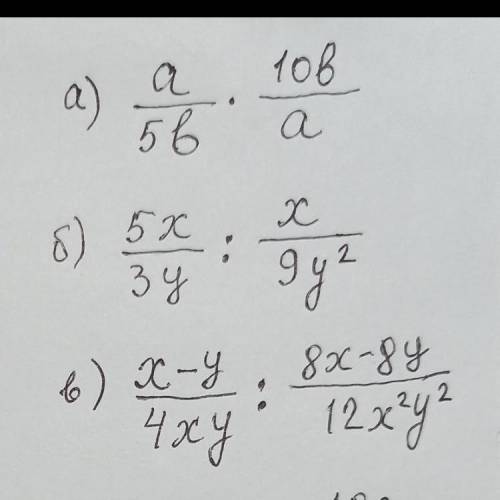 а) a/5b · 10b/a
б) 5x/3y : x/9y²
в) x-y/4xy : 8x-8y/12x²y²